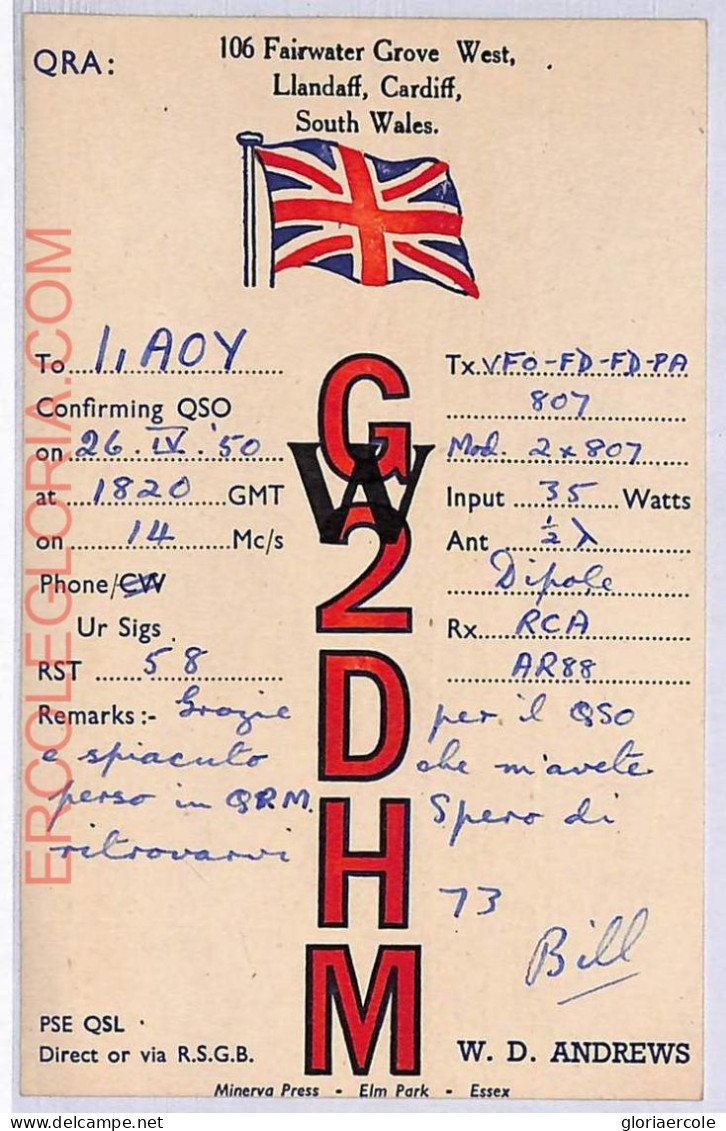 QRA:
106 Fairwater Grove West,
Llandaff, Cardiff,
South Wales.
To I1AOY
Confirming QSO
on 26.IV.'50
at 1820 GMT
on 14 Mc/s
Phone/CW
Ur Sigs
RST 58
Tx VFO-FD-FD-PA
807
Mod. 2x807
Input 35 Watts
Ant ½ λ
Dipole
Rx RCA
AR88
G
W
2
D
H
M
Remarks:- Grazie per il QSO
e spiacuto che m'avete
perso in QRM. Spero di
ritrovarvi
73
Bill
PSE QSL
Direct or via R.S.G.B.
W. D. ANDREWS
Minerva Press - Elm Park - Essex
ERCOLEGLORIA.COM
gloriaercole